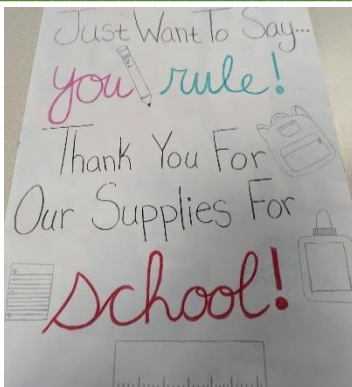 Just Want To Say...
you rule!
Thank You For
Our Supplies For
school!